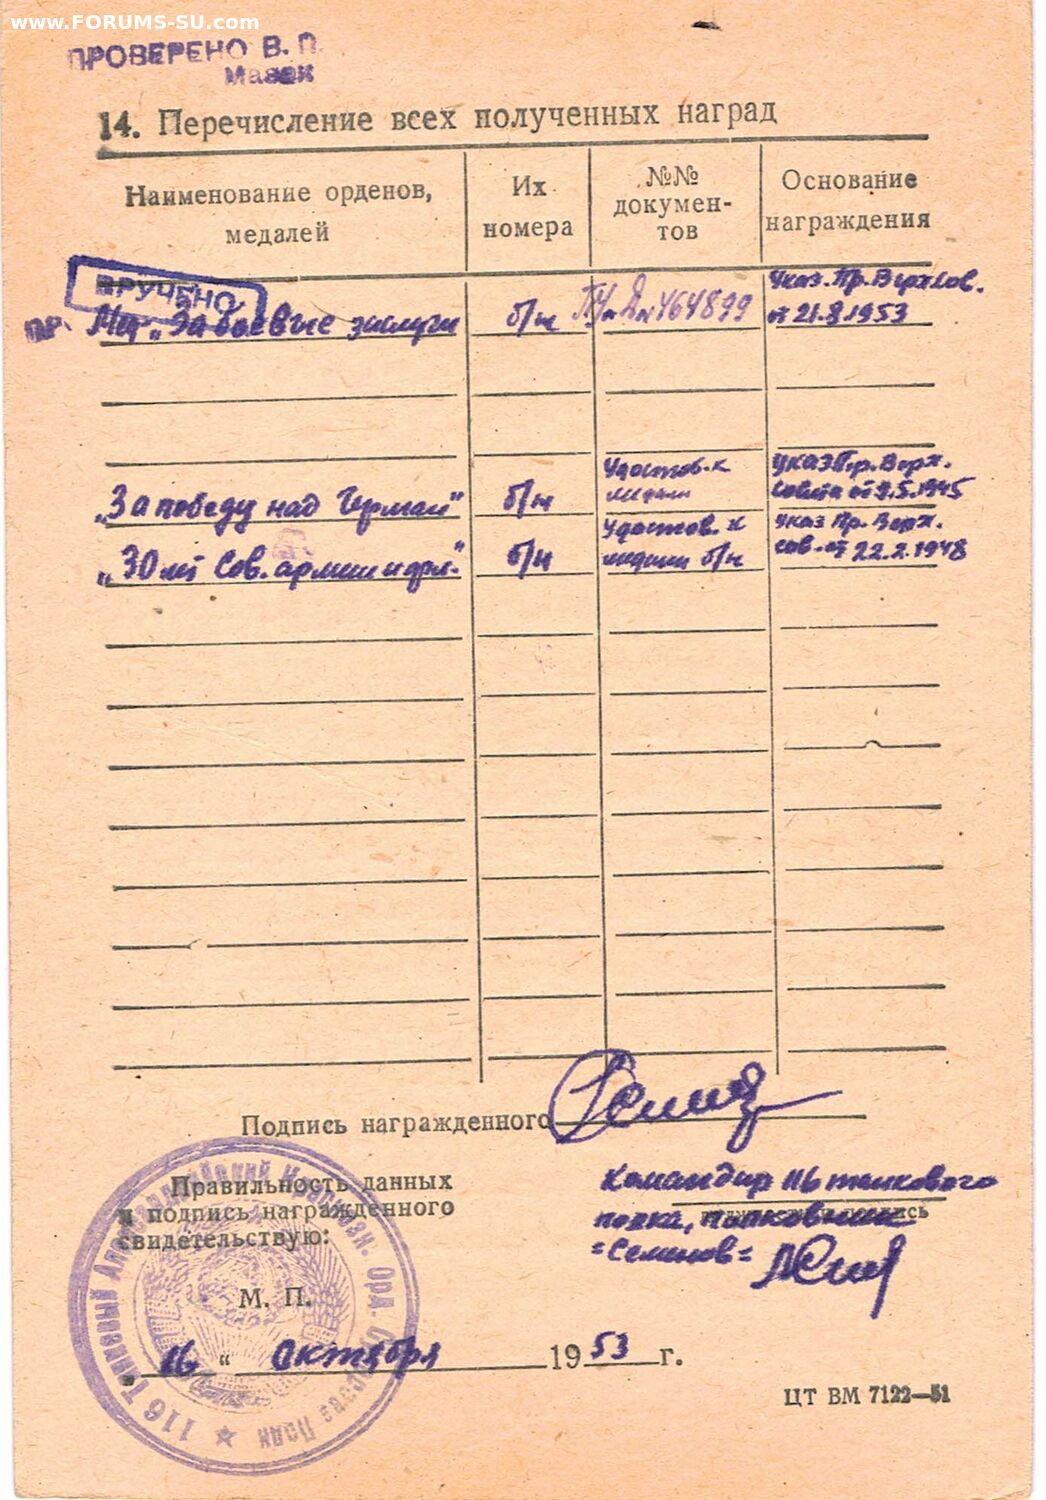 www.FORUMS-SU.com
ПРОВЕРЕНО В. П.
14. Перечисление всех полученных наград
Наименование орденов, медалей
Их номера
№№ докумен-
тов
Основание награждения
ВРУЧЕНО
пр. Мед. „За боевые заслуги
б/н
Д № 464899
Указ. Пр. Верх Сов.
от 21.8.1953
„За победу над Герман"
б/н
Удостов. к
медали
указ Пр. Верх.
Совета от 9.5.1945
„30 лет Сов. армии и
б/н
Удостов. к
медали б/н
указ Пр. Верх.
сов. от 22.2.1948
Подпись награжденного
Правильность данных
и подпись награжденного
свидетельствую:
Командир 116 танкового
полка, полковник
=Семенов=
М. П.
„ 16 “ Октября 1953 г.
116 Танковый Орд. Суворова Полк
ЦТ ВМ 7122—51